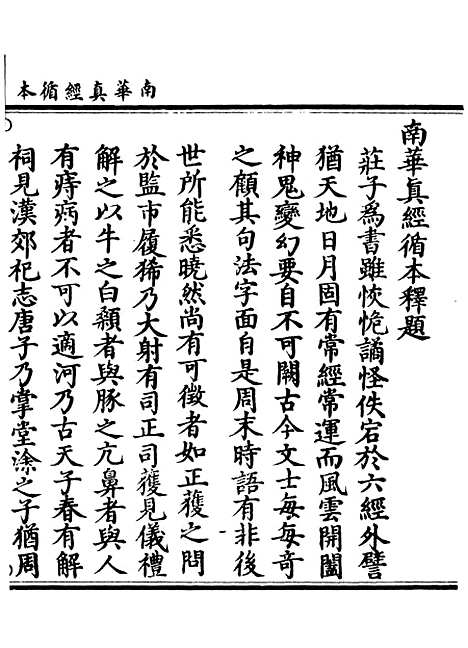 南華真經循本
南華真經循本釋題
莊子爲書雖恢恑譎怪佚宕於六經外譬
猶天地日月固有常經常運而風雲開闔
神鬼變幻要自不可闕古今文士每每奇
之顧其句法字面自是周末時語有非後
世所能悉曉然尚有可徵者如正獲之問
於監市履狶乃大射有司正司獲見儀禮
解之以牛之白顙者與豚之亢鼻者與人
有痔病者不可以適河乃古天子春有解
祠見漢郊祀志唐子乃掌堂涂之子猶周